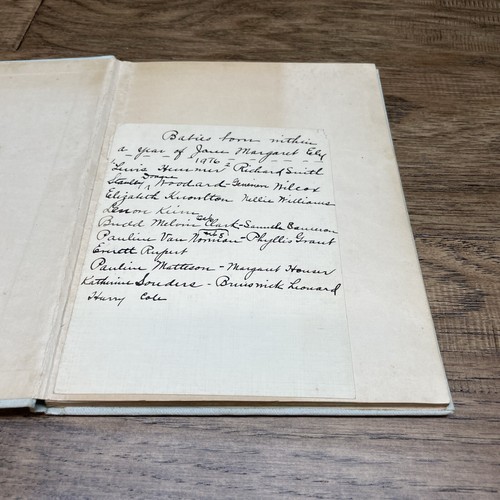 Babies born within
a year of June Margaret Ely
1916
Lewis Hemmer Richard Smith
Stanley Woodard - Genevieve Wilcox
Elizabeth Knowlton Nellie Williams
Lenon Keim
Budd Melvin Clark - Samuel Cameron
Pauline Van Norman - Phyllis Grant
Everett Rupert
Pauline Matteson - Margaret Houser
Katherine Souders - Brunswick Leonard
Harry Cole